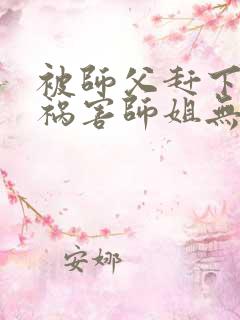 被師父赶下
祸害師姐無
安娜